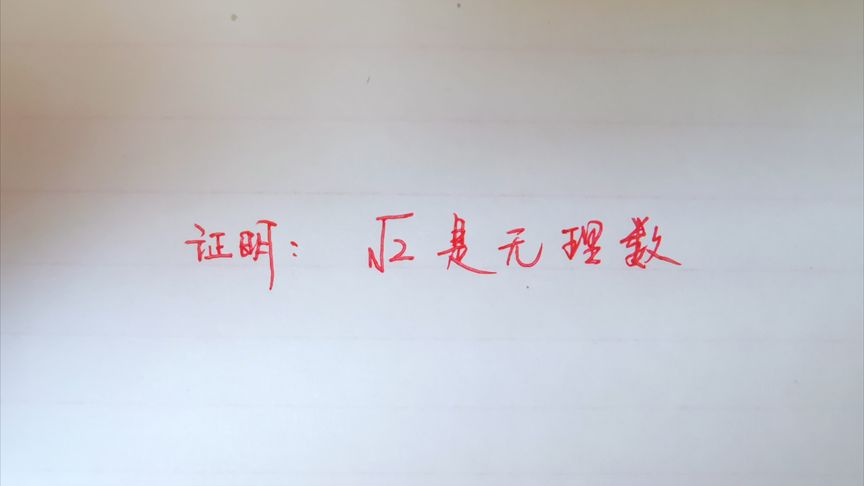 证明： √2 是无理数